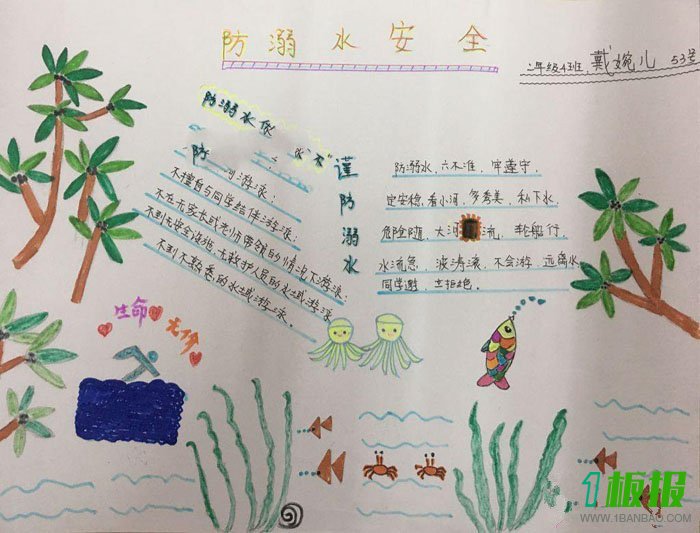 防溺水安全
二年级4班 戴婉儿 53号
防溺水
水"不"
防 游泳:
不擅自与同学结伴游泳:
不在无家长或老师带领的情况下游泳:
不到无安全设施、无救护人员的水域游泳
不到不熟悉的水域游泳.
谨防溺水
防溺水,六不准,牢遵守.
定安稳,看小河,多秀美,私下水,
危险随,大河 流,轮船行,
水流急,波涛滚,不会游,远离水
同学邀 拒绝.
生命无价
1板报
WWW.1BANBAO.COM